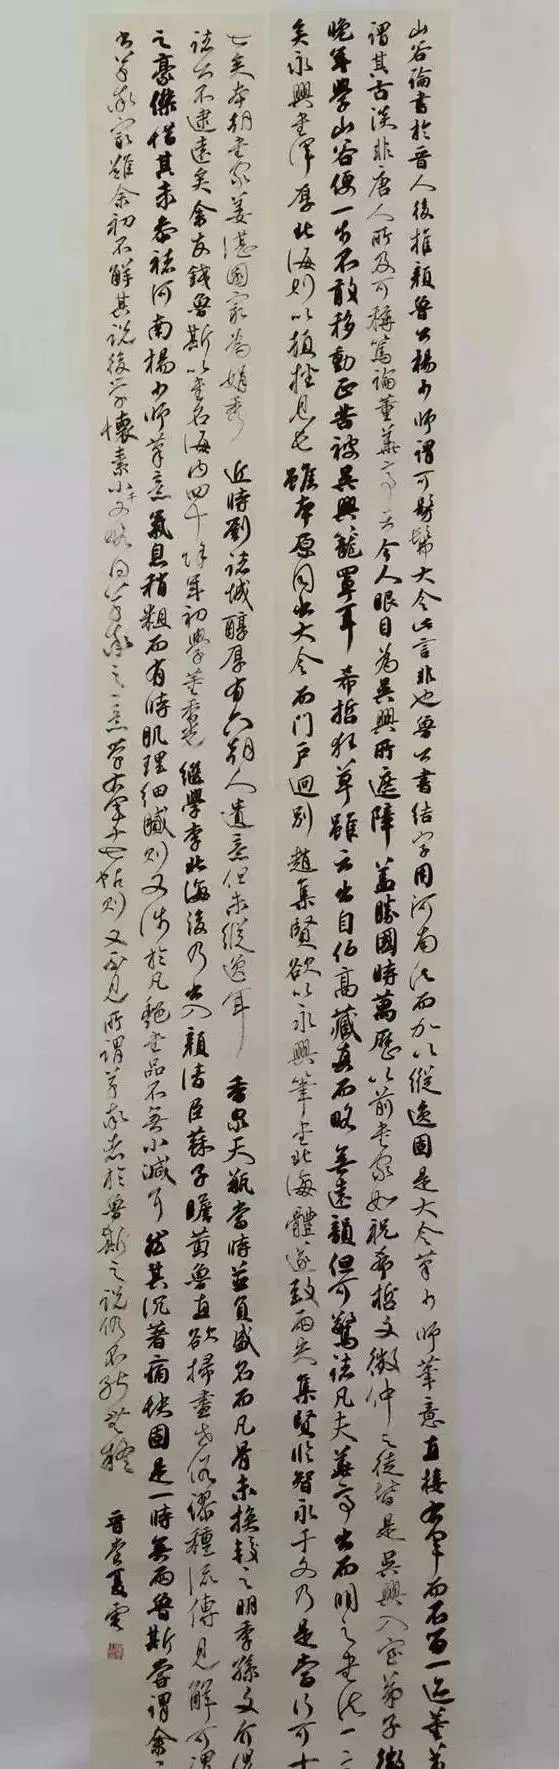 山谷論書於晉人後推顏魯公楊少師謂可髣髴大令此言非也魯公書結字用河南法而加以縱逸固是大令筆少師筆意直接右軍而不留一迹董華
謂其古淡非唐人所及可稱篤論董華亭云今人眼目為吳興所遮障蓋勝國時萬歷以前書家如祝希哲文徵仲之徒皆是吳興入室弟子徵
晚年學山谷便一步不敢移動正苦被吳興籠罩耳希哲狂草雖云出自伯高藏真而略無遠韻但可驚諸凡夫華亭出而明之書法一
矣永興書渾厚北海則以頓挫見長雖本原同出大令而門戶迥別趙集賢欲以永興筆書北海體遂致兩失集賢臨智永千文乃是當行可十
七矣本朝書家姜湛園最為娟秀近時劉諸城醇厚有六朝人遺意但未縱逸耳香泉天瓶當時並負盛名而凡骨未換較之明季孫文介倪
諸公不逮遠矣余友錢魯斯以書名海內四十餘年初學董香光繼學李北海後乃出入顏清臣蘇子瞻黃魯直欲掃盡世俗謬種流傳見解可謂
之豪傑惜其未參褚河南楊少師筆意氣息稍粗而有時肌理細膩則又涉於凡艷書品不無小減耳然其沉著痛快固是一時無兩魯斯嘗謂余
出筆欲宕余初不解其說後學懷素小千文略得筆欲之意學右軍帖則又不見所謂筆欲者於魯斯之說仍不能無疑
晉堂夏雲